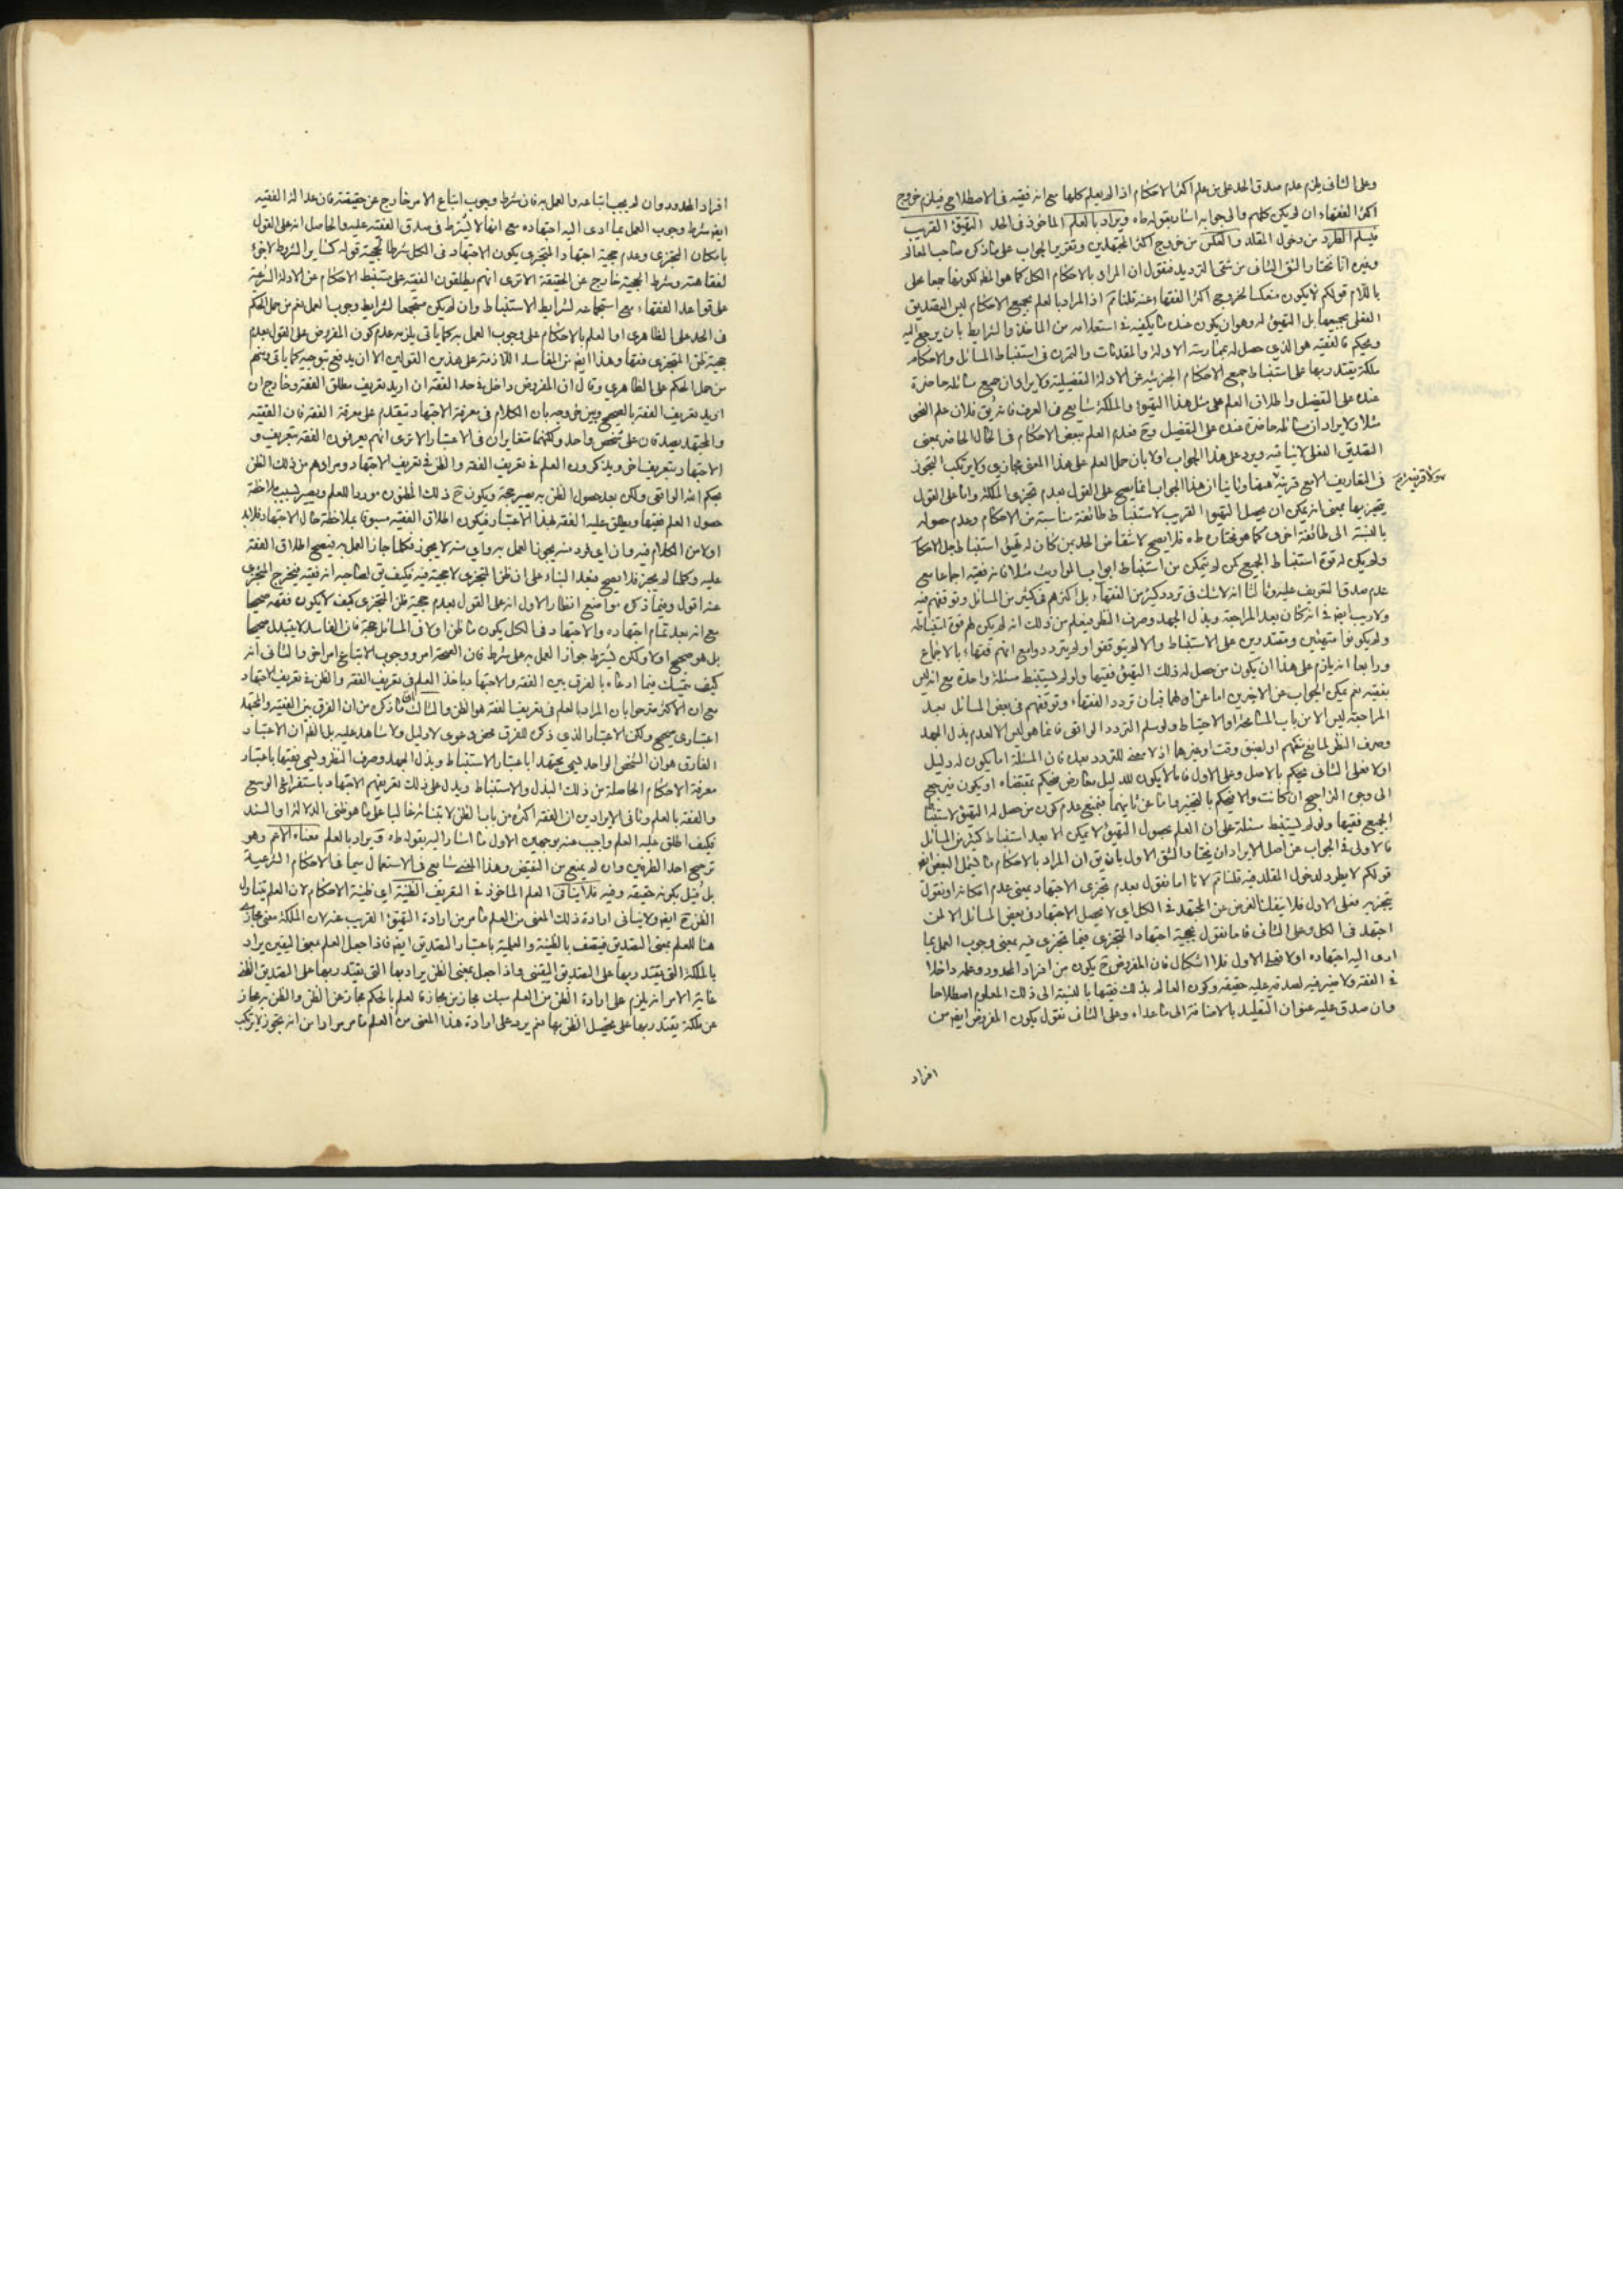 وعلى الثانى يلزم عدم صدق الحد على من علم اكثر الاحكام اذا لم يعلم كلها مع انه فقيه فى الاصطلاح فيلزم خروج
اكثر الفقهاء ان لم يكن كلهم والى جوابه اشار بقوله طاه ويراد بالعلم الماخوذ فى الحد التهيؤ القريب
فيسلم الطرد من دخول المقلد والعكس من خروج اكثر المجتهدين وتقرير الجواب على ما ذكره صاحب المعالم
وغيره انا نختار الشق الثانى من شقى الترديد فنقول ان المراد بالاحكام الكل كما هو الظ لكونها جمعا محلى
باللام قولكم لا يكون منعكسا لخروج اكثر الفقهاء عنه قلنا تم اذ المراد بالعلم بجميع الاحكام ليس التصديق
الفعلى بجميعها بل التهيؤ له وهو ان يكون عنده ما يكفيه فى استعلامه من الماخذ والشرايط بان يرجع اليه
ويحكم فالفقيه هو الذى حصل له بممارسة الادلة والمقدمات والتمرن فى استنباط المسائل والاحكام
ملكة يقتدر بها على استنباط جميع الاحكام الجزئية عن الادلة التفصيلية ولا يراد ان جميع مسائله حاضرة
عنده على التفصيل واطلاق العلم على مثل هذا التهيؤ والملكة شايع فى العرف فانه يق فلان علم النحو
مثلا ولا يراد ان مسائله حاضرة عنده على التفصيل وح فعدم العلم ببعض الاحكام فى الحال الحاضر بمعنى
التصديق الفعلى لا ينافيه ويرد على هذا الجواب اولا بان حمل العلم على هذا المعنى مجازى ولا يرتكب التجوز
فى التعاريف الا مع قرينة ولا قرينة هنا وثانيا ان هذا الجواب انما يصح على القول بعدم تجزى الملكة واما على القول
بتجزيها بمعنى انه يمكن ان يحصل التهيؤ القريب لاستنباط طائفة مناسبة من الاحكام وعدم حصوله
بالنسبة الى طائفة اخرى كما هو مختاره طاه فلا يصح لانتقاض الحد بمن كان له تهيؤ استنباط جل الاحكام
ولم يكن له قوة استنباط الجميع كمن لم يتمكن من استنباط ابواب المواريث مثلا فانه فقيه اجماعا مع
عدم صدق التعريف عليه وثالثا انه لا شك فى تردد كثير من الفقهاء بل اكثرهم فى كثير من المسائل وتوقفهم فيه
ولا ريب ايض فى انه كان بعد المراجعة وبذل الجهد وصرف النظر فيعلم من ذلك انه لم يكن لهم قوة استنباطه
ولم يكونوا متهيئين ومقتدرين على الاستنباط والا لم يتوقفوا ولم يترددوا مع انهم فقهاء بالاجماع
ورابعا انه يلزم على هذا ان يكون من حصل له ذلك التهيؤ فقيها ولو لم يستنبط مسئلة واحدة مع انه ليس
بفقيه نعم يمكن الجواب عن الاخيرين اما عن اولهما فبان تردد الفقهاء وتوقفهم فى بعض المسائل بعد
المراجعة ليس الا من باب المسامحة او الاحتياط ولو سلم التردد الواقعى فانما هو ليس الا لعدم بذل الجهد
وصرف النظر لمانع منهم او لضيق وقت او غيرهما اذ لا معنى للتردد بعده فان المسئلة اما يكون له دليل
اولا فعلى الثانى يحكم بالاصل وعلى الاول فاما لا يكون للدليل معارض فيحكم بمقتضاه او يكون فيرجع
الى وجوه التراجيح ان كانت والا فيحكم بالتخيير واما عن ثانيهما فبمنع عدم كون من حصل له التهيؤ لاستنباط
الجميع فقيها ولو لم يستنبط مسئلة على ان العلم بحصول التهيؤ لا يمكن الا بعد استنباط كثير من المسائل
فالاولى فى الجواب عن اصل الايراد ان يختار الشق الاول بان يق ان المراد بالاحكام ما يشمل البعض ايض
قولكم لا يطرد لدخول المقلد فيه قلنا تم لانا اما نقول بعدم تجزى الاجتهاد بمعنى عدم امكانه او نقول
بتجزيه فعلى الاول فلا ينفك الفرض عن المجتهد فى الكل اى لا يحصل الاجتهاد فى بعض المسائل الا لمن
اجتهد فى الكل وعلى الثانى فاما نقول بحجية اجتهاد المتجزى فيما تجزى فيه بمعنى وجوب العمل بما
ادى اليه اجتهاده اولا فعلى الاول فلا اشكال فان المفروض ح يكون من افراد المحدود وعلمه داخلا
فى الفقه ولا ضير فيه لصدقه عليه حقيقه وكون العالم بذلك فقيها بالنسبة الى ذلك المعلوم اصطلاحا
وان صدق عليه عنوان التقليد بالاضافة الى ما عداه وعلى الثانى نقول يكون المفروض ايض من
افراد
افراد المحدود وان لم يجب اتباعه والعمل به فان شرط وجوب اتباع الامر خارج عن حقيقته فان عدالة الفقيه
ايض شرط وجوب العمل بما ادى اليه اجتهاده مع انها لا يشترط فى صدق الفقيه عليه والحاصل انه على القول
بامكان التجزى وعدم حجية اجتهاد المتجزى يكون الاجتهاد فى الكل شرطا لحجية قوله كساير الشروط لا جزء
لفقاهته وشرط الحجية خارج عن الحقيقة الا ترى انهم يطلقون الفقيه على مستنبط الاحكام عن الادلة الشرعية
على قواعد الفقهاء مع استجماعه لشرايط الاستنباط وان لم يكن مستجمعا لشرايط وجوب العمل نعم من حمل الحكم
فى الحد على الظاهرى او العلم بالاحكام على وجوب العمل به كما ياتى يلزمه عدم كون المفروض على القول بعدم
حجية ظن المتجزى فقها وهذا ايض من المفاسد اللازمة على هذين القولين الا ان يدفع بتوجيه كما ياتى ومنهم
من حمل الحكم على الظاهرى وقال ان المفروض داخل فى حد الفقه ان اريد تعريف مطلق الفقه وخارج ان
اريد تعريف الفقه بالصحيح وبين وجهه بان الكلام فى معرفة الاجتهاد متقدم على معرفة الفقه فان الفقيه
والمجتهد يصدقان على شخص واحد ولكنهما متغايران فى الاعتبار الا ترى انهم يعرفون الفقه بتعريف و
الاجتهاد بتعريف اخر ويذكرون العلم فى تعريف الفقه والظن فى تعريف الاجتهاد ومرادهم من ذلك الظن
بحكم الله الواقعى ولكن بعد حصول الظن به يصير حجة ويكون ح ذلك المظنون موردا للعلم ويصير بسبب ملاحظة
حصول العلم فقيها ويطلق عليه الفقه بهذا الاعتبار فيكون اطلاق الفقيه مسبوقا بملاحظة حال الاجتهاد فلا بد
اولا من الكلام فيه وان اى فرد منه يجوز العمل به واى منه لا يجوز فكلما جاز العمل به فيصح اطلاق الفقه
عليه وكلما لم يجز فلا يصح فبعد البناء على ان ظن المتجزى لا حجية فيه فكيف يق لصاحبه انه فقيه فيخرج المتجزى
عنه اقول وفيما ذكره مواضع انظار الاول انه على القول بعدم حجية ظن المتجزى كيف لا يكون فقهه صحيحا
مع انه بعد تمام اجتهاده والاجتهاد فى الكل يكون ما ظن اولا فى المسائل حجة فان الفاسد لا يتبدل صحيحا
بل هو صحيح اولا ولكن يشترط جواز العمل به على شرط فان الصحة امر ووجوب الاتباع امر اخر والثانى انه
كيف يتمسك فيما ادعاه بالفرق بين الفقه والاجتهاد باخذ العلم فى تعريف الفقه والظن فى تعريف الاجتهاد
مع ان الاكثر صرحوا بان المراد بالعلم فى تعريف الفقه هو الظن والثالث ان ما ذكره من ان الفرق بين الفقيه والمجتهد
اعتبارى صحيح ولكن الاعتبار الذى ذكره للفرق محض دعوى لا دليل ولا شاهد عليه بل الظ ان الاعتبار
الفارق هو ان الشخص الواحد يسمى مجتهدا باعتبار الاستنباط وبذل الجهد وصرف النظر ويسمى فقيها باعتبار
معرفة الاحكام الحاصلة من ذلك البذل والاستنباط ويدل على ذلك تعريفهم الاجتهاد باستفراغ الوسع
والفقه بالعلم وثانى الايرادين ان الفقه اكثره من باب الظن لابتنائه غالبا على ما هو ظنى الدلالة او السند
فكيف اطلق عليه العلم واجيب عنه بوجهين الاول ما اشار اليه بقوله طاه ويراد بالعلم معناه الاعم وهو
ترجيح احد الطرفين وان لم يمنع من النقيض وهذا المعنى شايع فى الاستعمال سيما فى الاحكام الشرعية
بل قيل بكونه حقيقه وفيه فلا ينافى العلم الماخوذ فى التعريف الظنية اى ظنية الاحكام لان العلم يتناول
الظن ح ايض ولا ينافى ارادة ذلك المعنى من العلم ما مر من ارادة التهيؤ القريب عنه لان الملكة معنى مجازى
هنا للعلم بمعنى التصديق فيتصف بالظنية والعلمية باعتبار التصديق ايض فاذا جعل العلم بمعنى اليقين يراد
بالملكة التى يقتدر بها على التصديق اليقينى واذا جعل بمعنى الظن يراد بها التى يقتدر بها على التصديق الظنى
غاية الامر انه يلزم على ارادة الظن من العلم سبك مجاز من مجاز فالعلم بالحكم مجاز عن الظن والظن به مجاز
عن ملكة يقتدر بها على تحصيل الظن بها نعم يرد على ارادة هذا المعنى من العلم ما مر مرارا من انه تجوز لا يرتكب